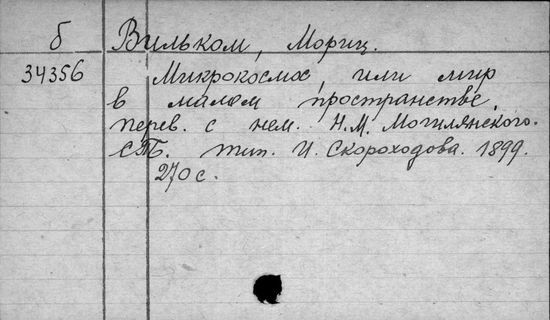 б Вильком, Мориц.
34356 Микрокосмос, или мир
в малом пространстве,
перев. с нем. Н.М. Могилянского.
СПб. тип. И. Скороходова. 1899.
270 с.